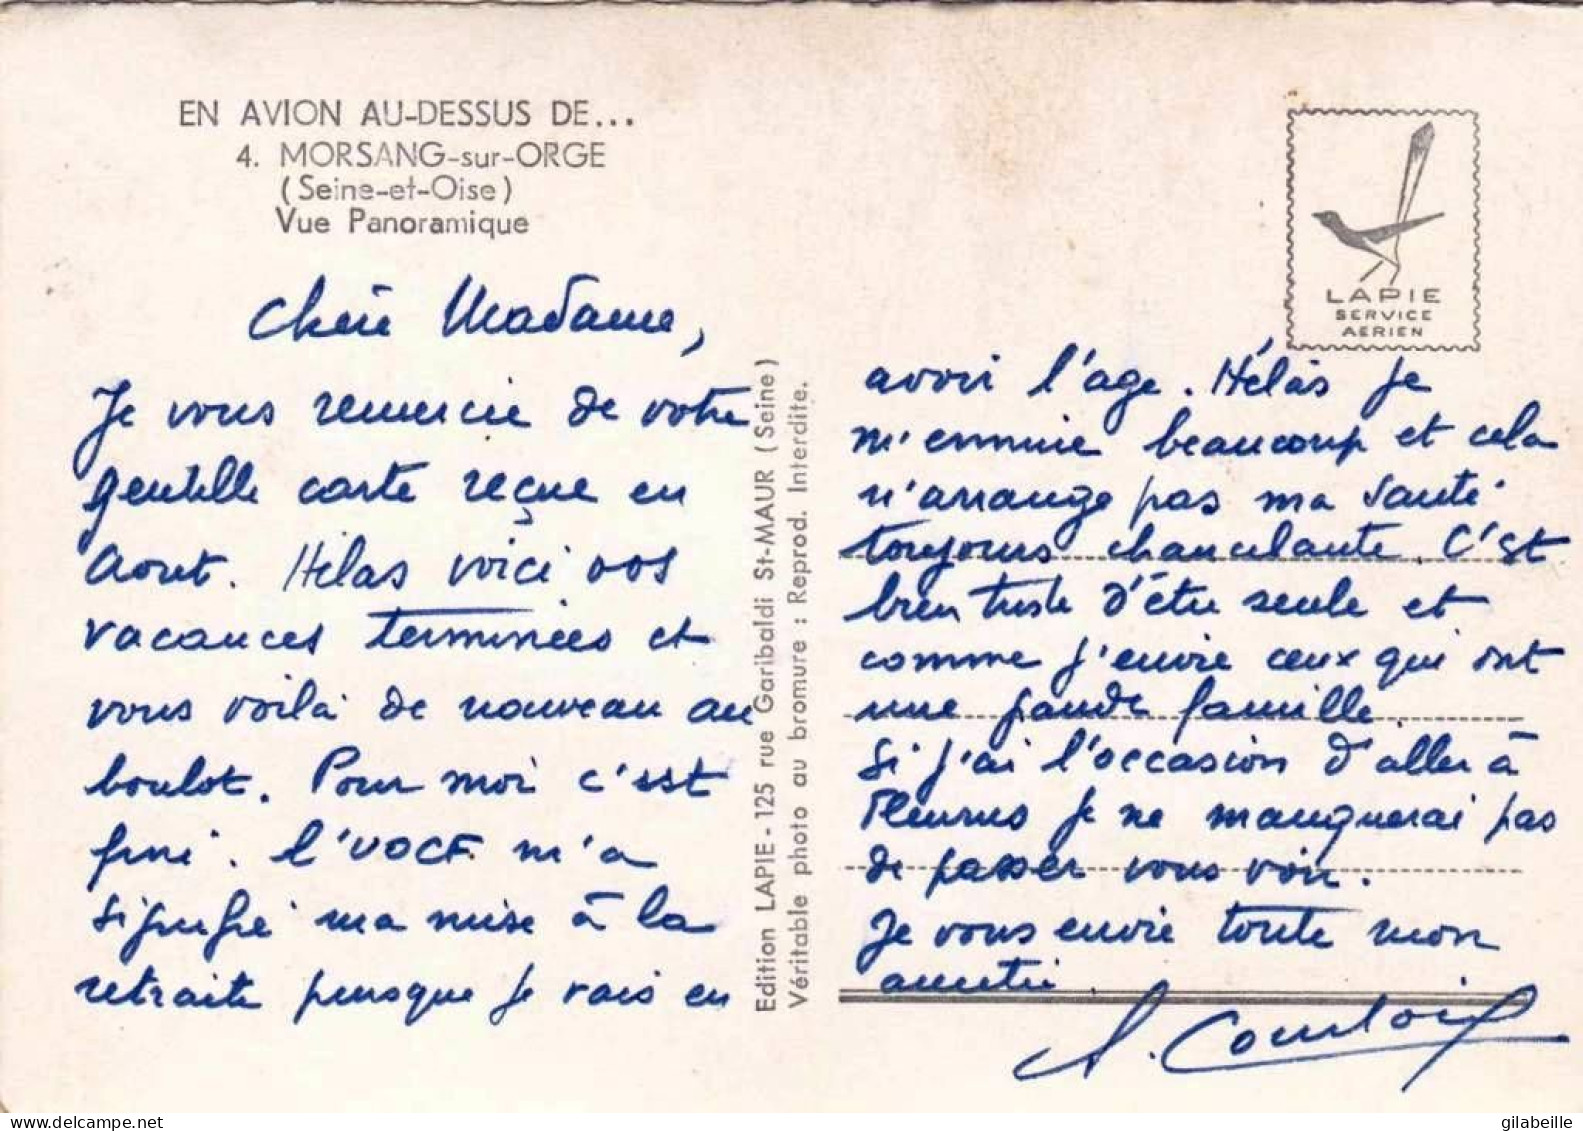 EN AVION AU-DESSUS DE...
4. MORSANG-sur-ORGE
(Seine-et-Oise)
Vue Panoramique
Chère Madame,
Je vous remercie de votre
gentille carte reçue en
Aout. Hélas voici vos
vacances terminées et
vous voilà de nouveau au
boulot. Pour moi c'est
fini. l'UOCF m'a
signifié ma mise à la
retraite puisque je vais en
Edition LAPIE - 125 rue Garibaldi St-MAUR (Seine)
Véritable photo au bromure : Reprod. Interdite.
LAPIE
SERVICE
AERIEN
avoir l'age. Hélas je
m'ennuie beaucoup et cela
n'arrange pas ma santé
toujours chancelante. C'est
bien triste d'être seule et
comme j'envie ceux qui ont
une grande famille.
Si j'ai l'occasion d'aller à
Fleurus je ne manquerai pas
de passer vous voir.
Je vous envoie toute mon
amitié.
A. Courtois
gilabeille